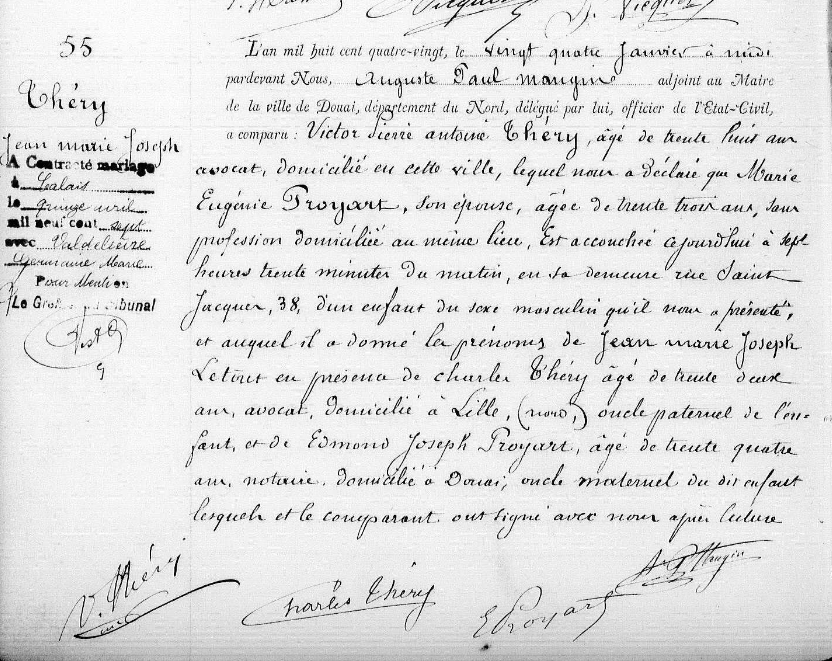 55
Théry
Jean marie Joseph
A Contracté mariage
à Calais
le quinze avril
mil neuf cent sept
avec
Germaine Marie
Pour Mention
Le Greffier du Tribunal
L'an mil huit cent quatre-vingt, le vingt quatre Janvier à midi
pardevant Nous, Auguste Paul Mangin adjoint au Maire
de la ville de Douai, département du Nord, délégué par lui, officier de l'Etat-Civil,
a comparu : Victor Pierre antoine Théry, âgé de trente huit ans
avocat, domicilié en cette ville, lequel nous a déclaré que Marie
Eugénie Proyart, son épouse, âgée de trente trois ans, sans
profession domiciliée au même lieu, Est accouchée cejourdhui à sept
heures trente minutes du matin, en sa demeure rue Saint
Jacques, 38, d'un enfant du sexe masculin qu'il nous a présenté,
et auquel il a donné les prénoms de Jean marie Joseph
Letout en présence de charles Théry âgé de trente deux
ans, avocat, domicilié à Lille, (nord,) oncle paternel de l'en-
fant, et de Edmond Joseph Proyart, âgé de trente quatre
ans, notaire, domicilié à Douai, oncle maternel du dit enfant
lesquels et le comparant ont signé avec nous après lecture
V. Théry
Charles Théry
E Proyart
A P Mangin